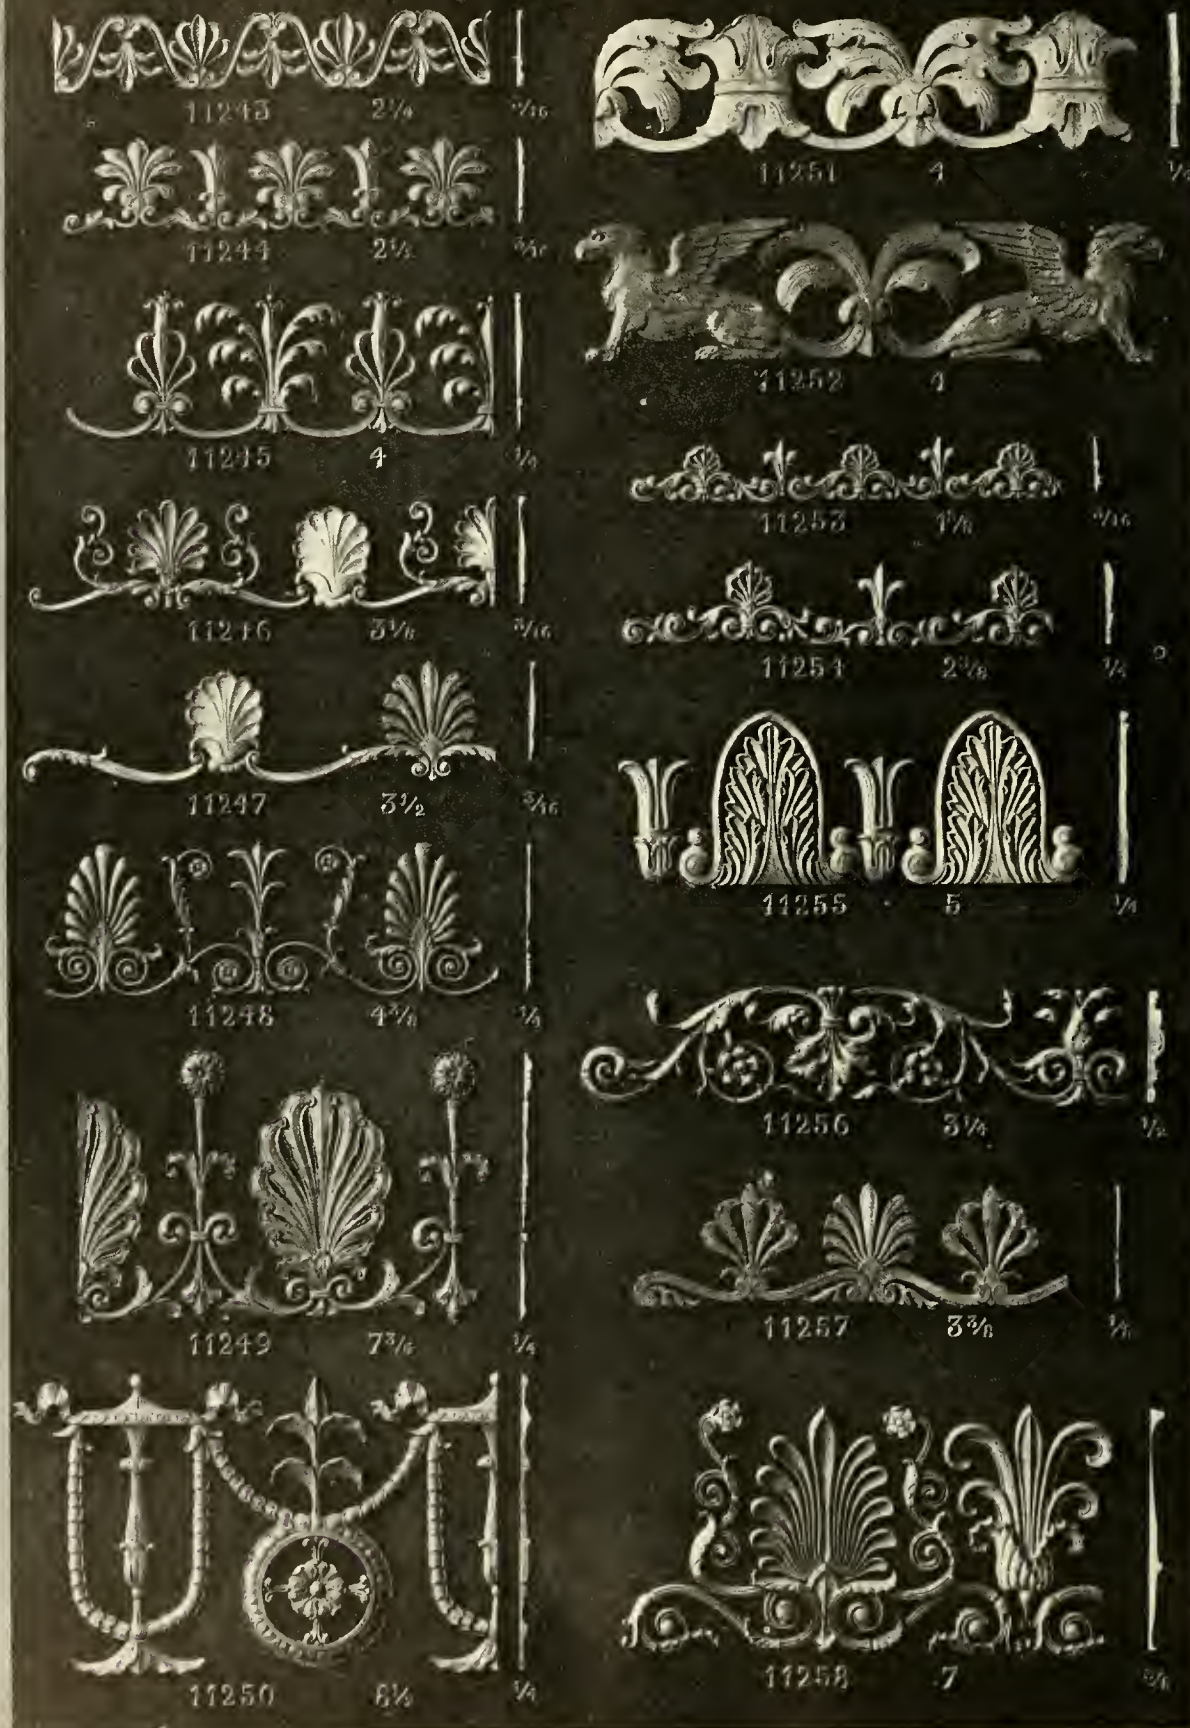 11243 2¼ 3/16
11244 2½ 3/16
11245 4 ¼
11246 3⅛ 3/16
11247 3½ 3/16
11248 4⅜ ¼
11249 7¾ ¼
11250 ¼
11251 4
11252 4
11253 1⅞ 3/16
11254 2⅜ ¼
11255 5 ¼
11256 3¼ ½
11257 3⅜ ⅛
11258 7